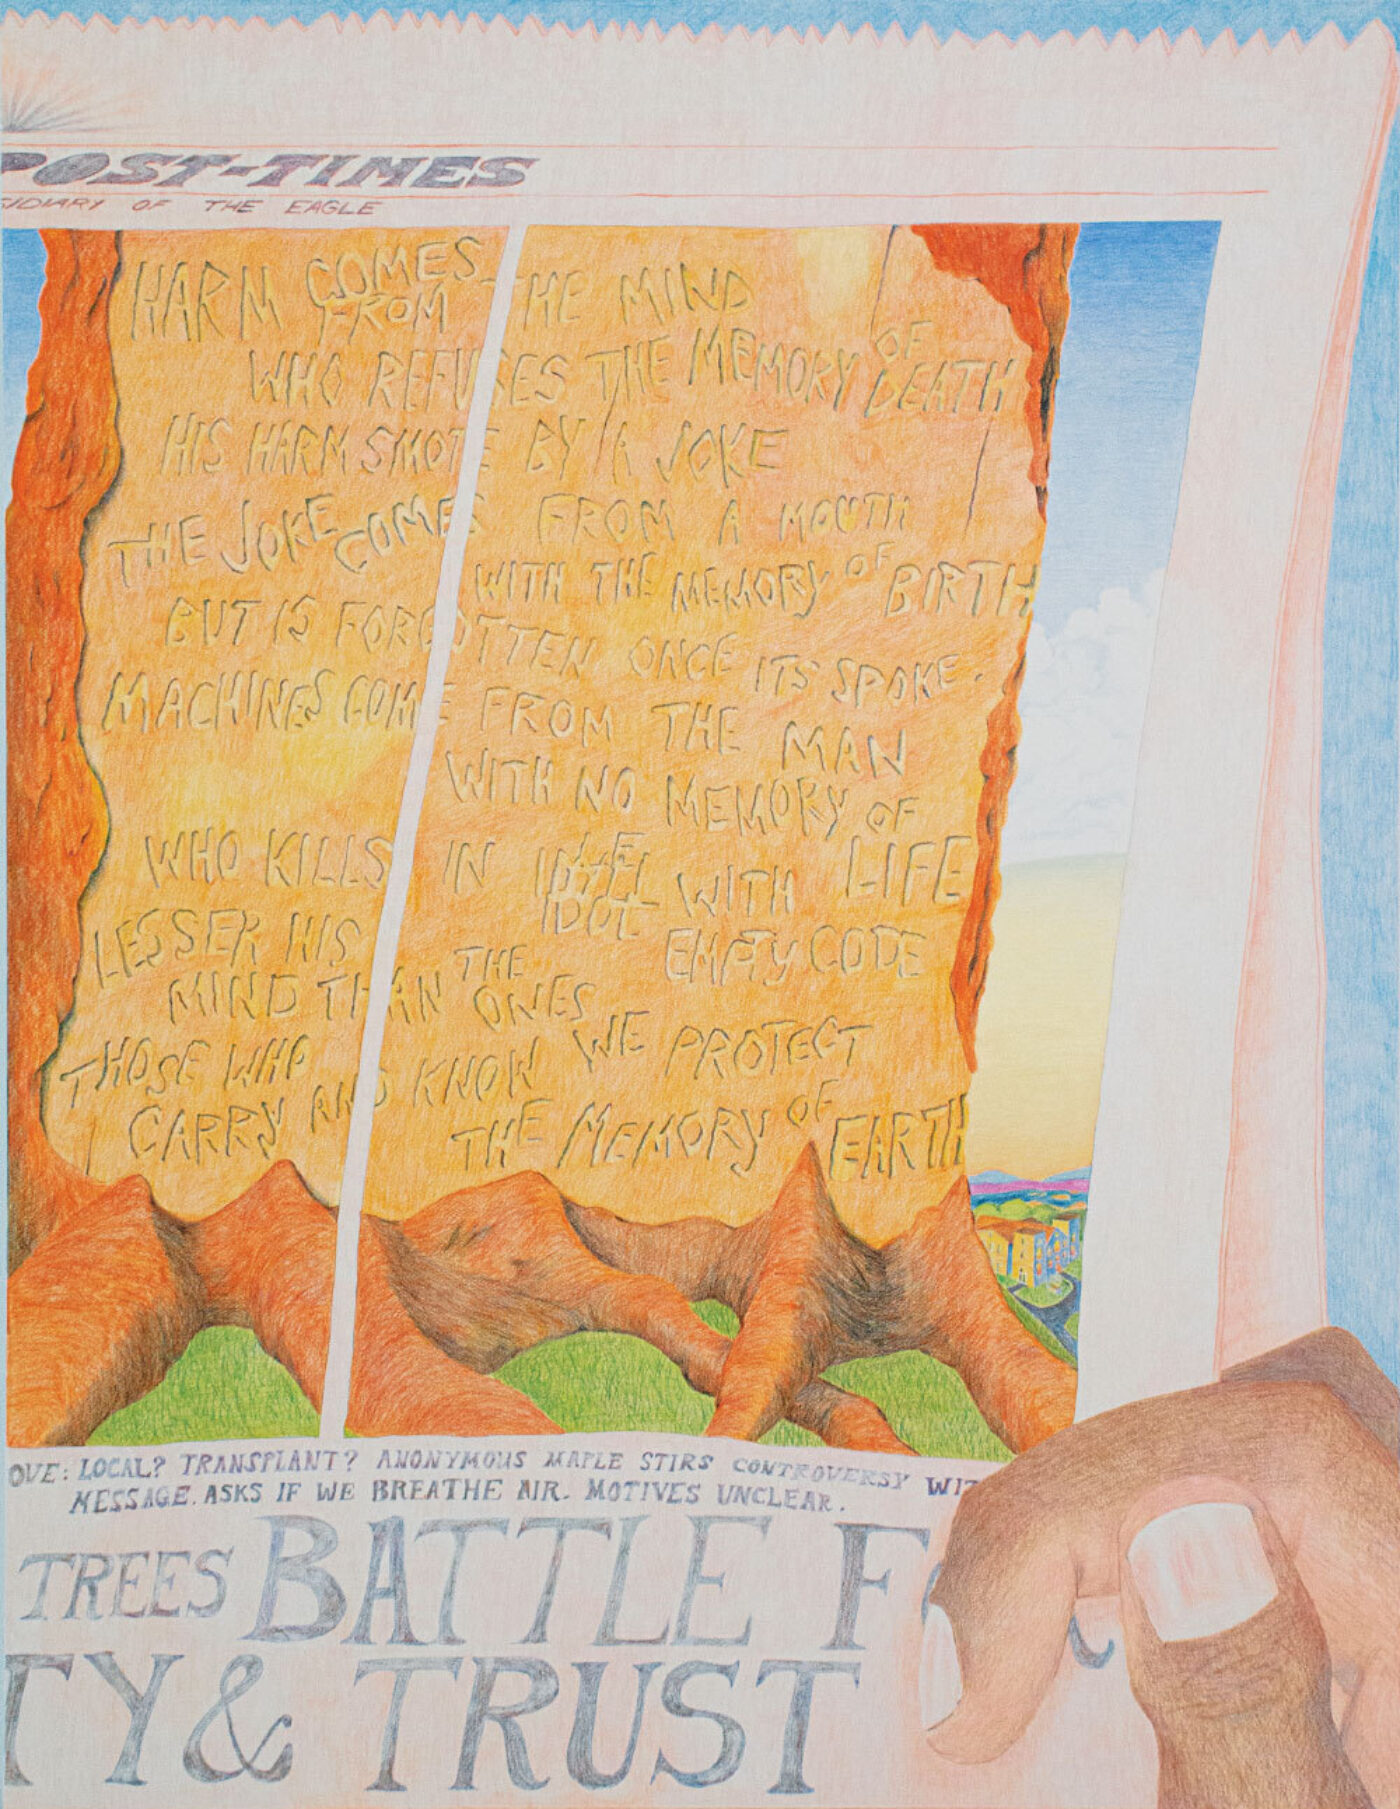 POST-TIMES
SIDIARY OF THE EAGLE
HARM COMES FROM THE MIND
WHO REFUSES THE MEMORY OF DEATH
HIS HARM SMOTE BY A JOKE
THE JOKE COMES FROM A MOUTH
WITH THE MEMORY OF BIRTH
BUT IS FORGOTTEN ONCE ITS SPOKE.
MACHINES COME FROM THE MAN
WITH NO MEMORY OF LIFE
WHO KILLS IN IDOL WITH EMPTY CODE
LESSER HIS MIND THAN THE ONES
WE PROTECT
THOSE WHO CARRY AND KNOW
THE MEMORY OF EARTH
OVE: LOCAL? TRANSPLANT? ANONYMOUS MAPLE STIRS CONTROVERSY WIT
MESSAGE. ASKS IF WE BREATHE AIR. MOTIVES UNCLEAR.
TREES BATTLE F
TY & TRUST